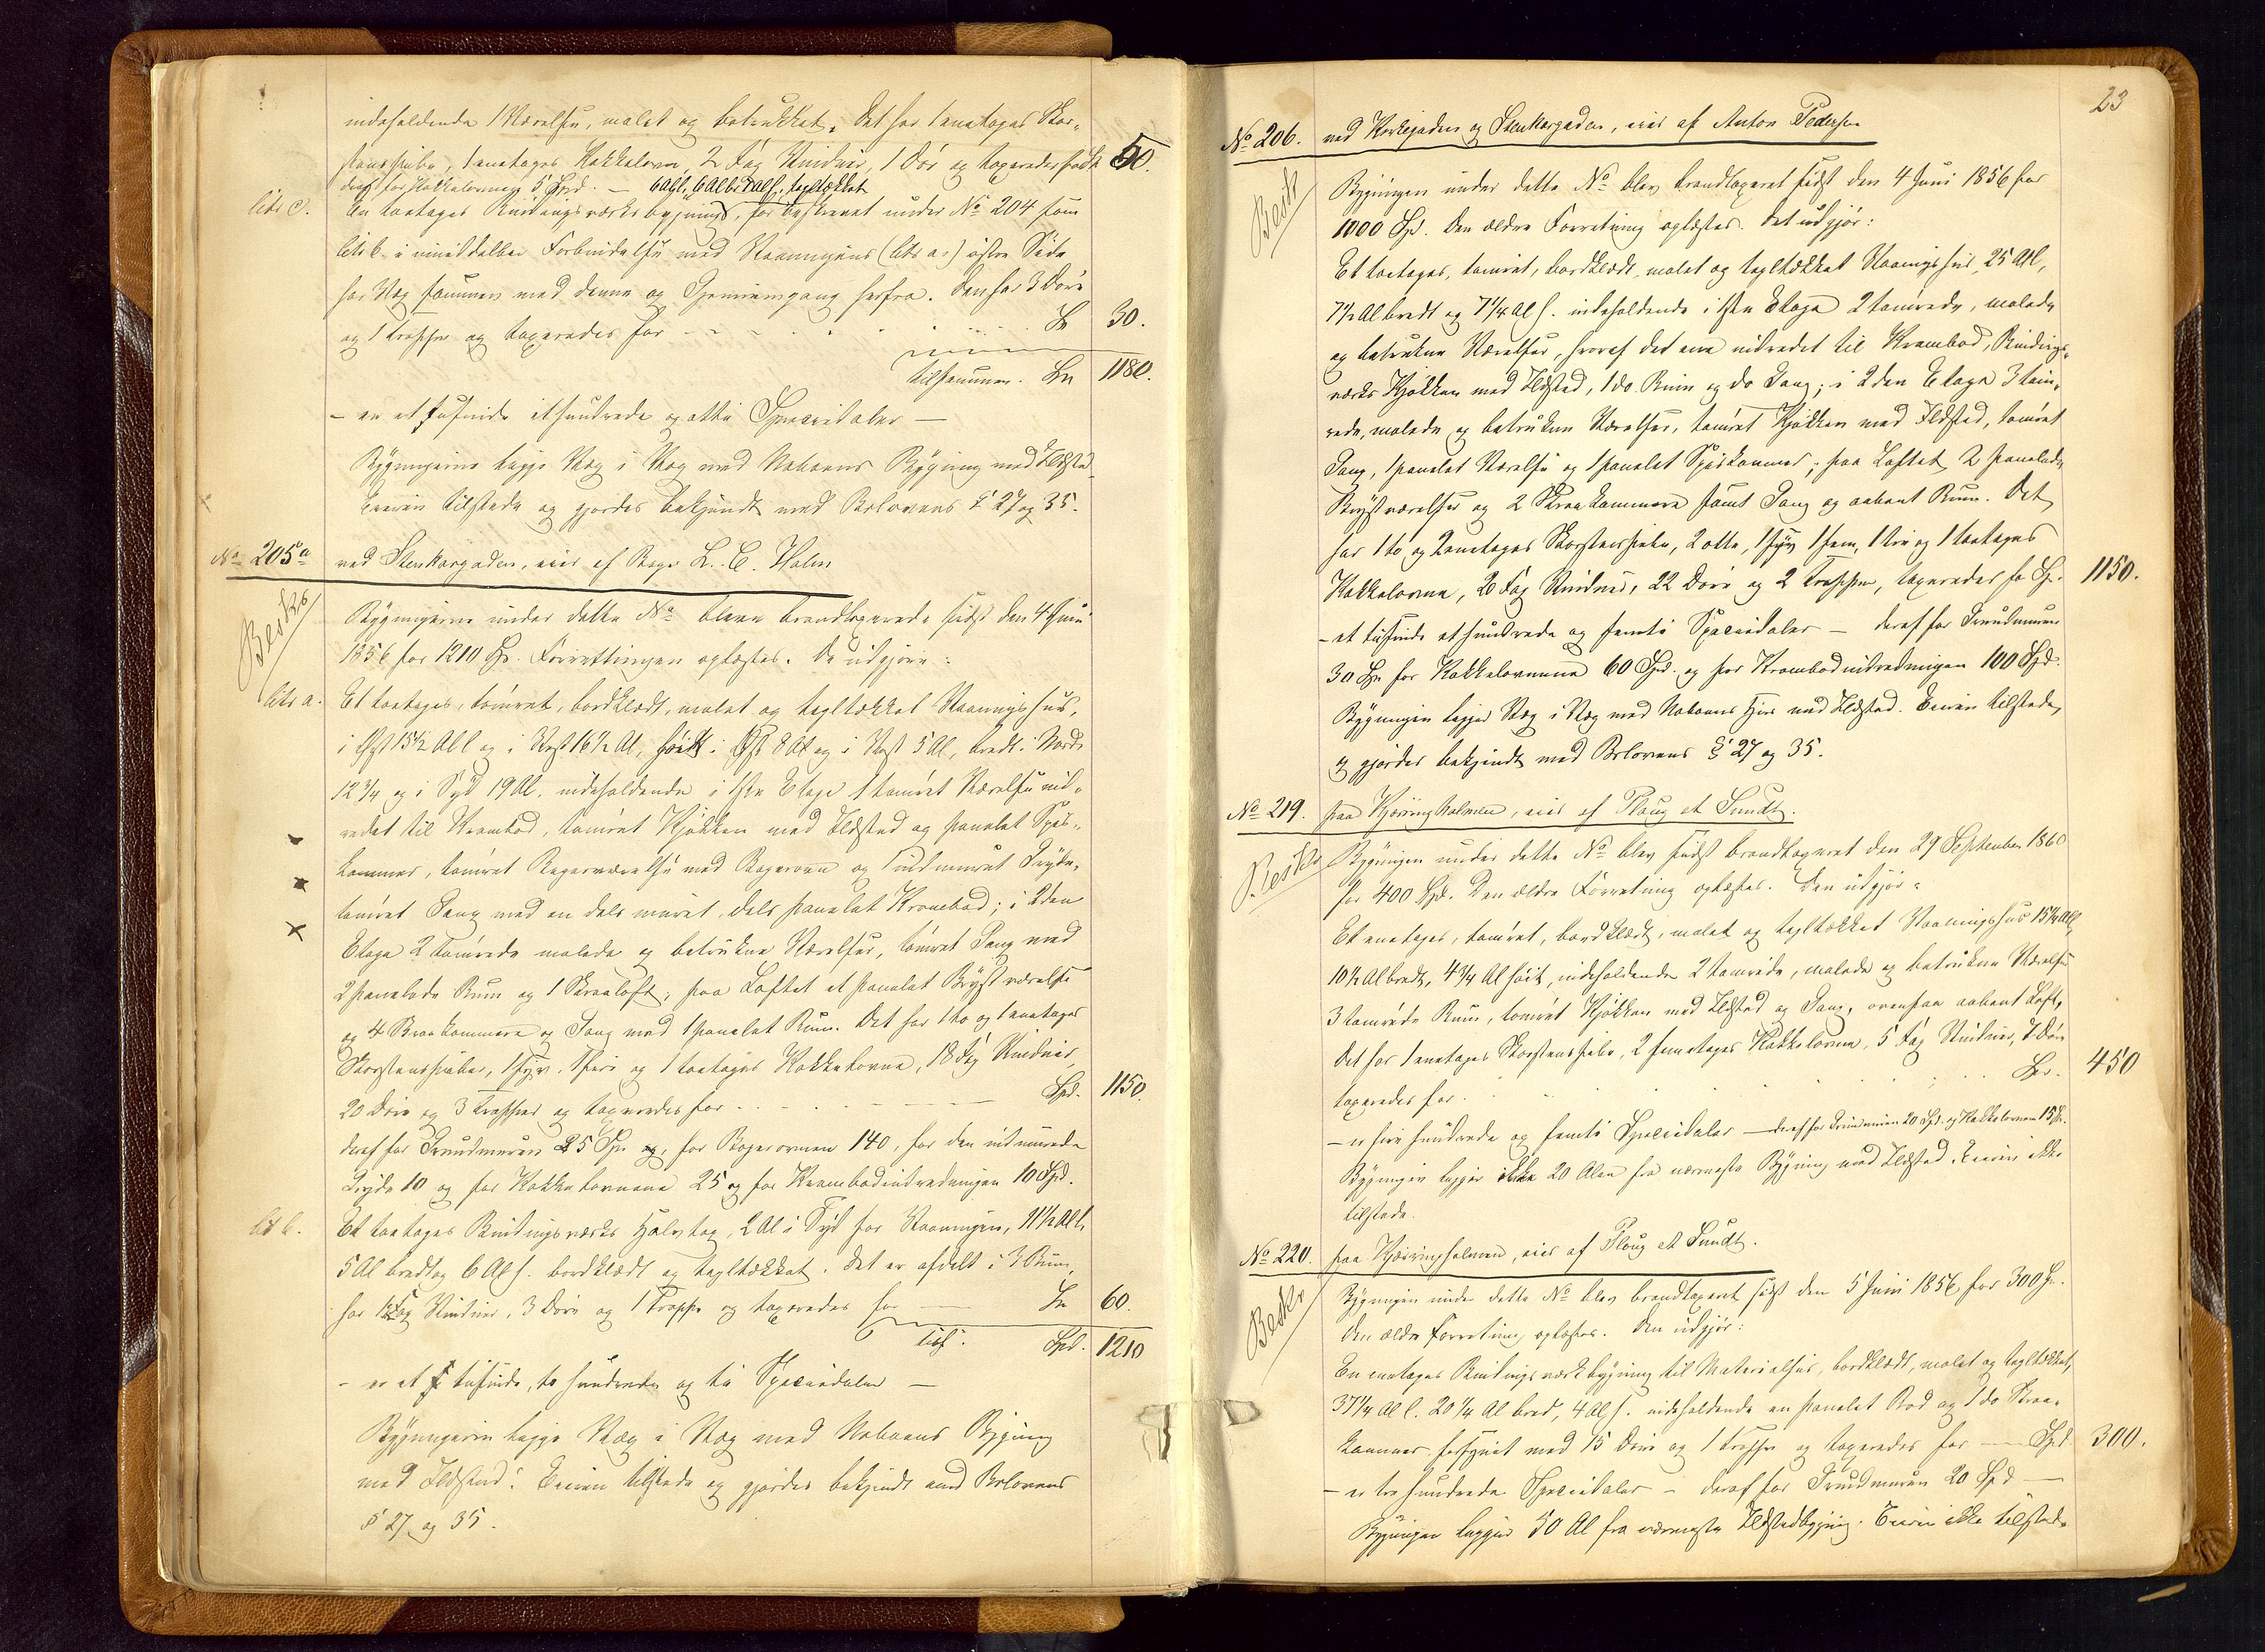 indeholdende 1 Værelse, malet og betrukket. Det har 1 enetages Skor-
stenspibe, 1 enetages Kakkelovn, 2 Fag Vinduer, 1 Dør og taxeredes for Sp. 50.
deraf for Kakkelovnen 5 Spd. — 6 Al l., 6 Al br. Al h., tegltækket
litr c. En toetages Bindingsværksbygning, før beskrevet under No 204 som
litr b. i umiddelbar Forbindelse med Vaaningens (litr a.) østre Side
har Væg sammen med denne og Gjennemgang herfra. Den har 3 Døre
og 1 Trappe og taxeredes for Sp 30.
tilsammen. Sp 1180.
– er et tusinde et hundrede og otti Speciedaler –
Bygningerne ligge Væg i Væg med Naboens Bygning med Ildsted
Eieren tilstede og gjordes bekjendt med Brlovens § 27 og 35.
No 205a ved Stenkargaden, eies af Bager L. C. Holm
Beskr Bygningerne under dette No bleve brandtaxerede sidst den 4 Juni
1856 for 1210 Sp. Forretningen oplæstes. De udgjøre:
litr a. Et toetages, tømret, bordklædt, malet og tegltækket Vaaningshus,
i Øst 15½ Al l og i Vest 16½ Al, høit i Øst 8 Al og i Vest 5 Al, bredt i Nord
12¾ og i Syd 19 Al. indeholdende i 1ste Etage 1 tømret Værelse ind-
redet til Krambod, tømret Kjøkken med Ildsted og panelet Spis-
kammer, tømret Bagerværelse med Bagerovn og indmuret Gryde,
tømret Gang med en dels muret, dels panelet Krambod; i 2den
Etage 2 tømrede malede og betrukne Værelser, tømret Gang med
2 panelede Rum og 1 Skraaloft; paa Loftet et panelet Brystværelse
og 4 Skraakammere og Gang med 1 panelet Rum. Det har 1 to og 1 enetages
Skorstenspiber, 1 fyr, 1 fire og 1 toetages Kakkelovne, 18 Fag Vinduer,
20 Døre og 3 Trapper og taxeredes for Spd. 1150.
deraf for Grundmuren 25 Sp, for Bagerovnen 140, for den indmurede
Gryde 10 og for Kakkelovnene 25 og for Krambodindredningen 10 Spd.
litr b. Et toetages Bindingsværks Halvtag, 2 Al i Syd for Vaaningen, 11½ Al l.
5 Al bredt og 6 Al h. bordklædt og tegltækket. Det er afdelt i 3 Rum,
har Fag Vinduer, 3 Døre og 1 Trappe og taxeredes for Sp 60.
tils. Spd. 1210
– er et tusinde, to hundrede og ti Speciedaler –
Bygningerne ligge Væg i Væg med Naboens Bygning
med Ildsted. Eieren tilstede og gjordes bekjendt med Brlovens
§ 27 og 35.
23
No 206. ved Kirkegaden og Stenkargaden, eies af Anton Pedersen
Beskr Bygningen under dette No blev brandtaxeret sidst den 4 Juni 1856 for
1000 Sp. Den ældre Forretning oplæstes. Det udgjør:
Et toetages, tømret, bordklædt, malet og tegltækket Vaaningshus, 25 Al l,
7½ Al bredt og 7¼ Al h. indeholdende i 1ste Etage 2 tømrede, malede
og betrukne Værelser, hvoraf det ene indredet til Krambod, Bindings-
værks Kjøkken med Ildsted, 1 do. Rum og do Gang; i 2den Etage 3 tøm-
rede, malede og betrukne Værelser, tømret Kjøkken med Ildsted, tømret
Gang, 1 panelet Værelse og 1 panelet Spiskammer; paa Loftet 2 panelede
Brystværelser og 2 Skraakammere samt Gang og aabent Rum. Det
har 1 to og 2 enetages Skorstenspiber, 2 otte, 1 syv, 1 fem, 1 tre og 1 toetages
Kakkelovne, 20 Fag Vinduer, 22 Døre og 2 Trapper, taxeredes for Sp. 1150.
– et tusinde et hundrede og femti Speciedaler – deraf for Grundmuren
30 Sp for Kakkelovnene 60 Spd. og for Krambodindredningen 100 Spd.
Bygningen ligger Væg i Væg med Naboens Hus med Ildsted. Eieren tilstede,
og gjordes bekjendt med Brlovens § 27 og 35.
No 219. paa Kjøringholmen, eies af Ploug et Sundt.
Beskr Bygningen under dette No blev sidst brandtaxeret den 29 September 1860
for 400 Sp. Den ældre Forretning oplæstes. Den udgjør:
Et enetages, tømret, bordklædt, malet og tegltækket Vaaningshus 15¼ Al l,
10½ Al bredt, 4¾ Al høit, indeholdende 2 tømrede, malede og betrukne Værelser
3 tømrede Rum, tømret Kjøkken med Ildsted og Gang, ovenpaa aabent Loft,
Det har 1 enetages Skorstenspibe, 2 femetages Kakkelovne, 5 Fag Vinduer, 7 Døre
taxeredes for Sp. 450
– er fire hundrede og femti Speciedaler – deraf for Grundmuren 20 Spd. og Kakkelovnene 15 Sp.
Bygningen ligger ikke 20 Alen fra nærmeste Bygning med Ildsted. Eieren ikke
tilstede.
No 220. paa Kjøringholmen, eies af Ploug et Sundt.
Beskr Bygningen under dette No blev brandtaxeret sidst den 5 Juni 1856 for 300 Sp.
Den ældre Forretning oplæstes. Den udgjør:
En enetages Bindingsværkbygning til Materialhus, bordklædt, malet og tegltækket,
37¼ Al l. 20¼ Al bred, 4 Al h. indeholdende en panelet Bod og 1 do Skraa-
kammer forsynet med 15 Døre og 1 Trappe og taxeredes for Spd 300.
– er tre hundrede Speciedaler – deraf for Grundmuren 20 Spd –
Bygningen ligger 50 Al fra nærmeste Ildstedbygning. Eieren ikke tilstede